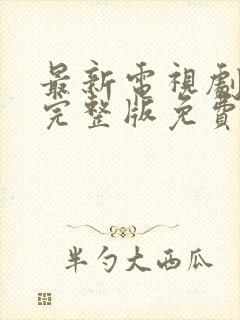 最新電視劇
完整版免費
半勺大西瓜